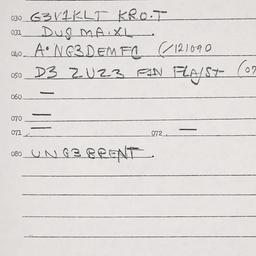 030 G3V1KLT KRO.T
031 DUS MA.XL
040 A. NG3DEMFN (/121090
050 D3 2UZ3 FIN FLA/ST (07
060 —
070 —
071 — 072. —
080 UNG3BRENT.